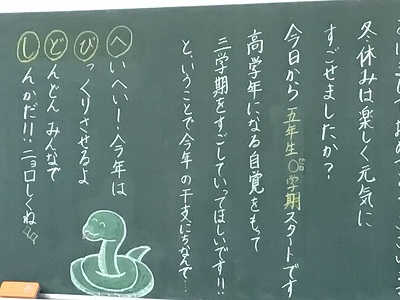 冬休みは楽しく元気に
すごせましたか?
今日から五年生0学期スタートです
高学年になる自覚をもって
三学期をすごしていってほしいです!!
と、いうことで今年の干支にちなんで…
へいへい!今年は
びっくりさせるよ
どんどんみんなで
しんかだ!!ニョロしくね